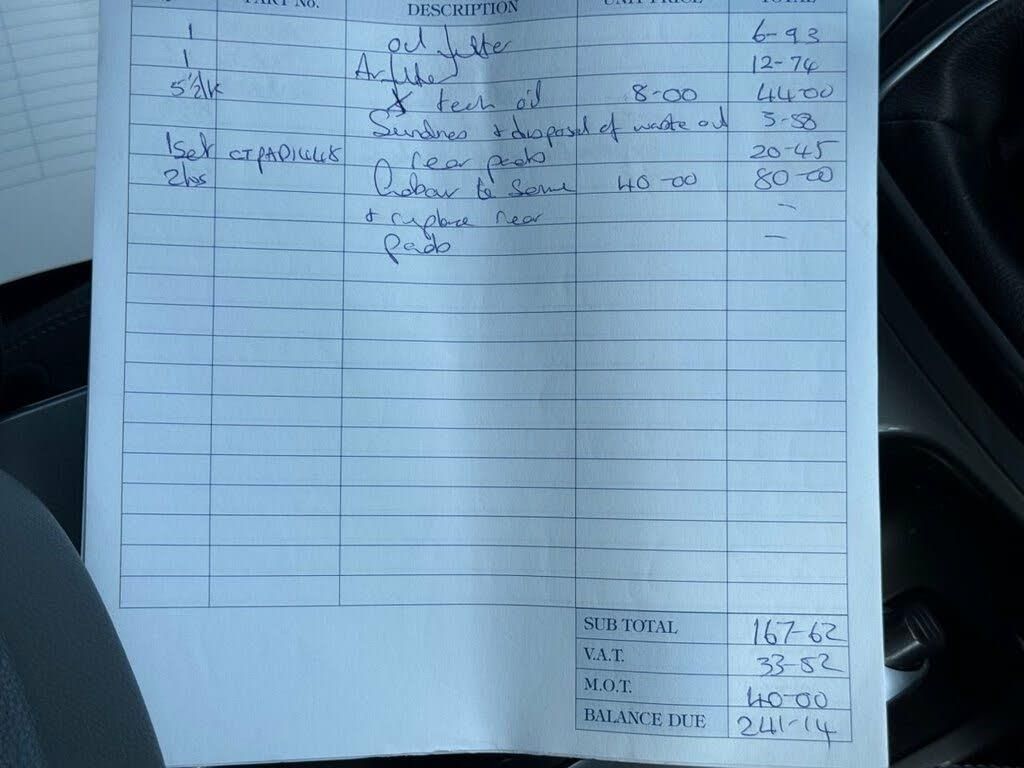 PART No. DESCRIPTION UNIT PRICE TOTAL
1 oil filter 6-93
1 Air filter 12-74
5½ltr X tech oil 8-00 44-00
Sundries & disposal of waste oil 3-50
1Set CTPAD1448 rear pads 20-45
2hrs Labour to Service 40-00 80-00
& replace rear -
pads -
SUB TOTAL 167-62
V.A.T. 33-52
M.O.T. 40-00
BALANCE DUE 241-14